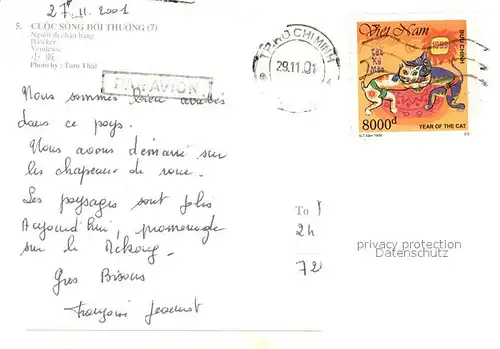 27. 11. 2001
5. CUỘC SỐNG ĐỜI THƯỜNG (7)
Người đi chào hàng
Hawker
Vendeuse
Photo by : Tam Thái
PAR AVION
TP.HO CHI MINH
29.11.01
Việt Nam
BƯU CHÍNH
1999
Tết
Kỷ
Mão
8000đ
YEAR OF THE CAT
Nous sommes bien arrivés
dans ce pays.
Nous avons démarré sur
les chapeaux de roue.
Les paysages sont jolis
Aujourd'hui, promenade
sur le Mékong.
Gros Bisous
Françoise
To
2h
72
privacy protection
Datenschutz